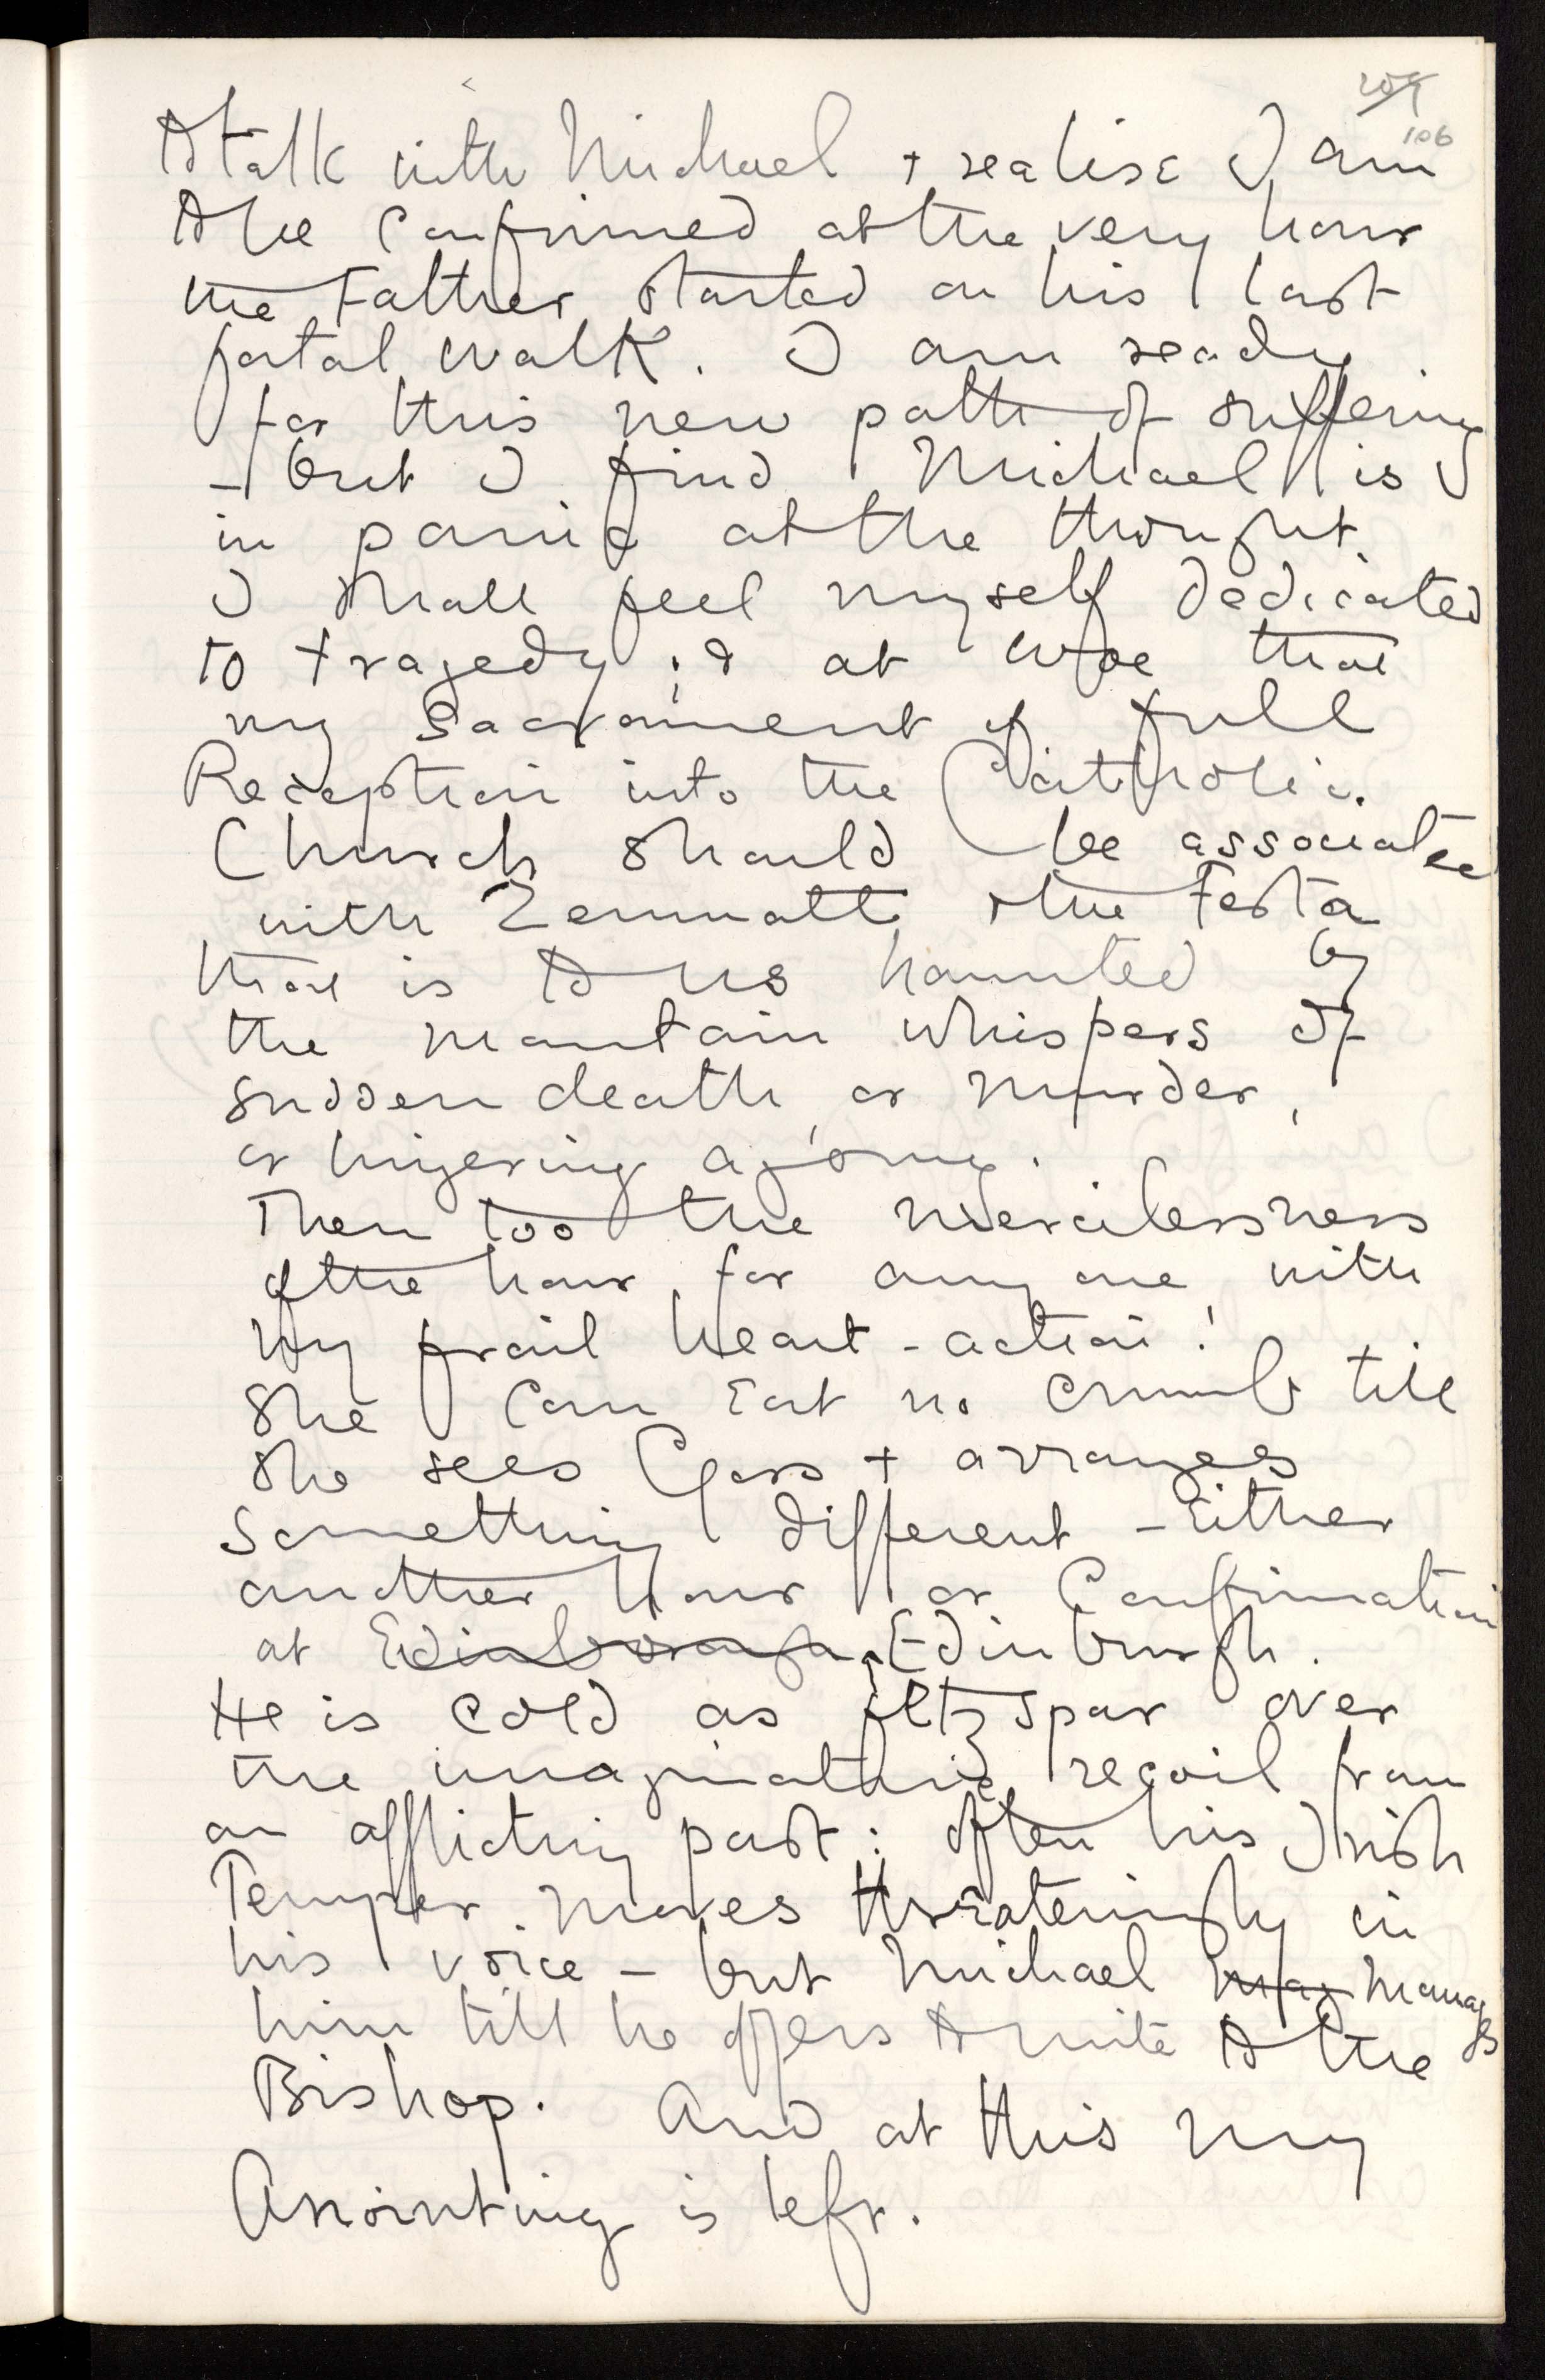 209
106
to talk with Michael + realise I am
to be Confirmed at the very hour
the Father started on his last
fatal walk. I am ready
for this new path of suffering
– but I find Michael is
in panic at the thought
I shall feel myself dedicated
to tragedy; & at woe that
my Sacrament of full
Reception into the Catholic
Church should be associated
with Zermatt & the Festa
that is to us haunted by
the mountain whispers of
sudden death, or murder,
or lingering agony.
Then too the mercilessness
of the hour for any one with
my frail heart-action!
She can eat no crumb till
she sees Goss + arranges
something different – Either
another hour or Confirmation
at Edinborough Edinburgh.
He is cold as feltzspar over
the imaginative recoil from
an afflicting past: often his Irish
Temper moves threateningly in
his voice – but Michael may manages
him till he offers to write to the
Bishop. And at this my
Anointing is left.